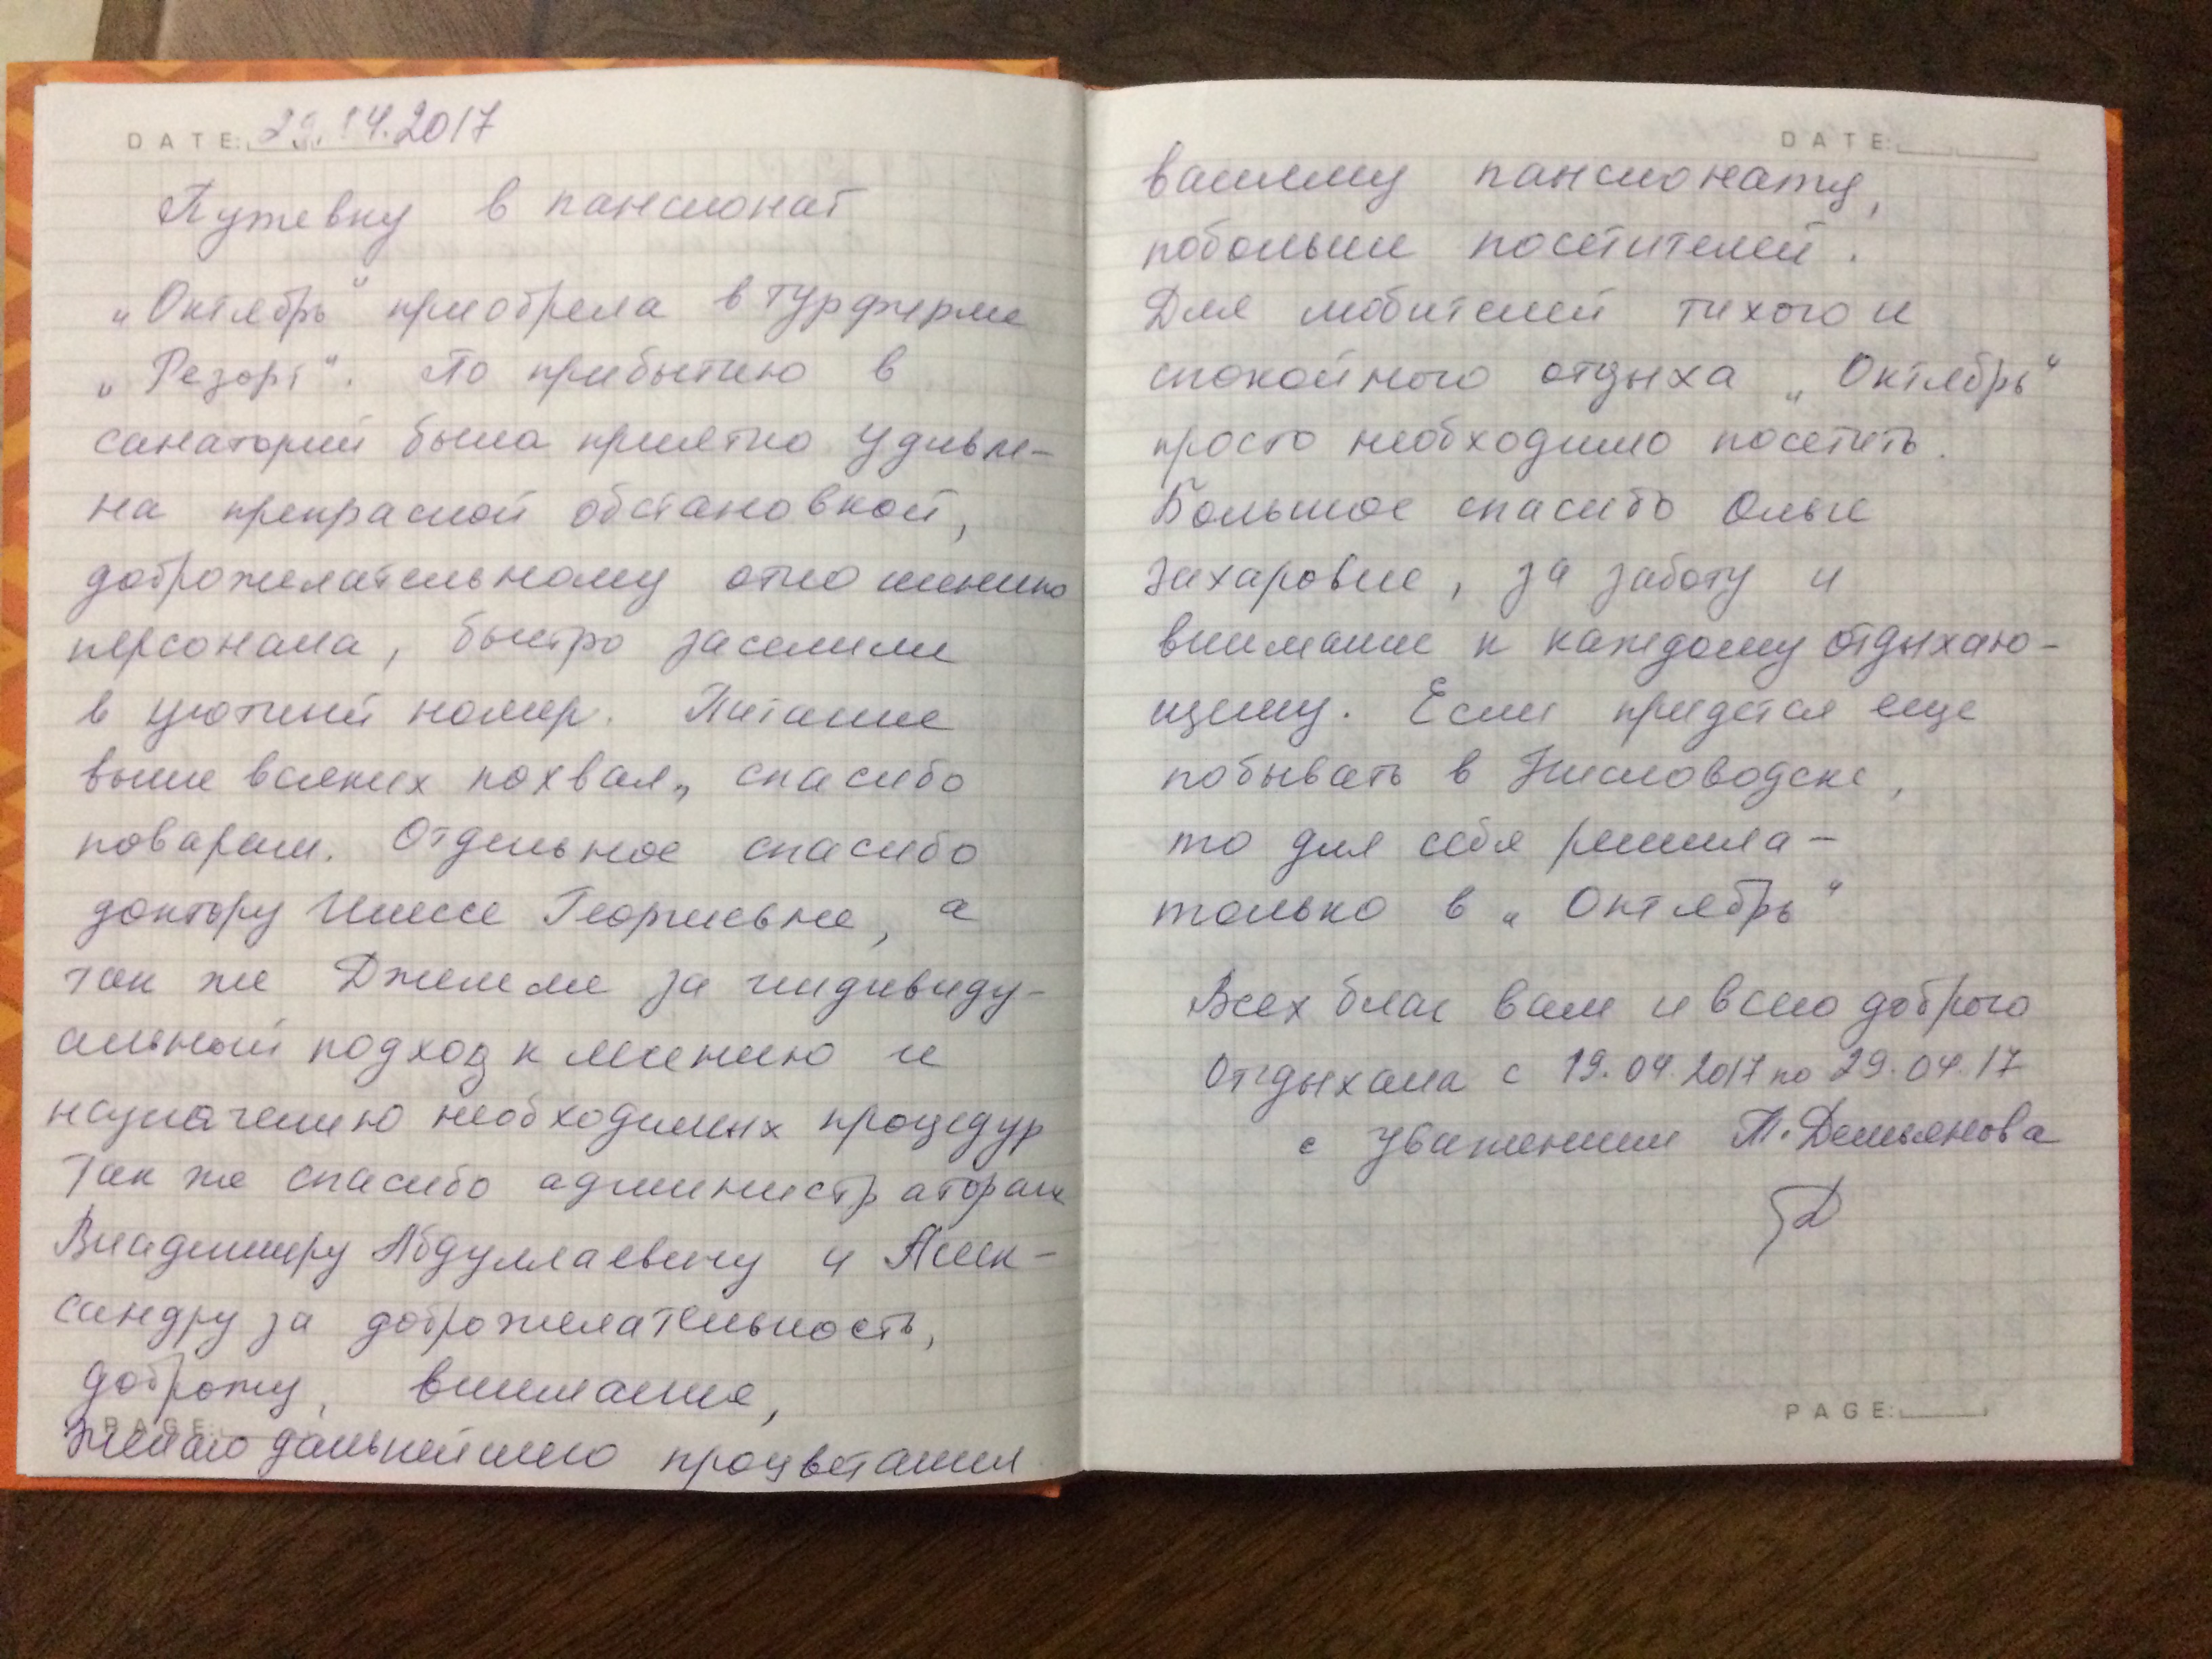 DATE: 29.04.2017
Путевку в пансионат
„Октябрь" приобрела в турфирме
„Резорт". По прибытию в
санаторий была приятно удивле-
на прекрасной обстановкой,
доброжелательному отношению
персонала, быстро заселили
в уютный номер. Питание
выше всяких похвал, спасибо
поварам. Отдельное спасибо
доктору Инессе Георгиевне, а
так же за индивиду-
альный подход к лечению и
назначению необходимых процедур
Так же спасибо администраторам
Владимиру Абдуллаевичу и Алек-
сандру за доброжелательность,
доброту, внимание,
PAGE:
Желаю дальнейшего процветания
DATE:
вашему пансионату,
побольше посетителей.
Для любителей тихого и
спокойного отдыха „Октябрь"
просто необходимо посетить.
Большое спасибо Ольге
Захаровне, за заботу и
внимание к каждому отдыхаю-
щему. Если придется еще
побывать в Кисловодске,
то для себя решила -
только в „Октябрь"
Всех благ вам и всего доброго
Отдыхала с 19.04.2017 по 29.04.17
с уважением Т. Демьянова
PAGE: